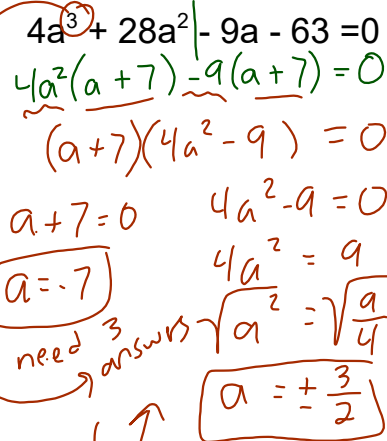 4a³ + 28a² - 9a - 63 = 0
4a²(a + 7) - 9(a + 7) = 0
(a + 7)(4a² - 9) = 0
a + 7 = 0
a = -7
4a² - 9 = 0
4a² = 9
√a² = √9/4
a = ± 3/2
need 3
answrs